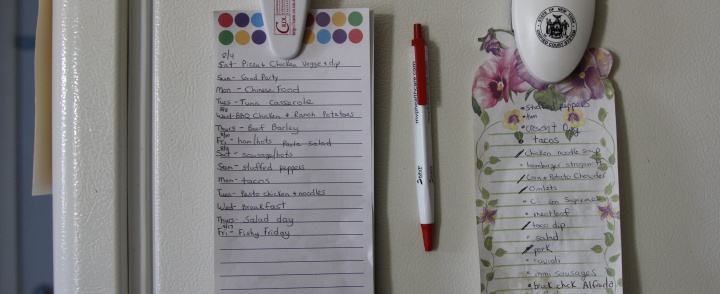 5/4
Sat- Pizza & Chicken Veggie & dip
Sun- Grad Party
Mon- Chinese Food
Tues- Tuna Casserole
Wed- BBQ Chicken & Ranch Potatoes
Thurs- Beef Barley
Fri- ham/hots Pasta Salad
Sat- sausage/hots
Sun- stuffed peppers
Mon- tacos
Tues- Pesto chicken & noodles
Wed- Breakfast
Thurs- Salad day
Fri- Fishy Friday
STATE OF NEW YORK
UNIFIED COURT SYSTEM
stuffed peppers
Ham
tacos
Chicken noodle soup
hamburger stroganoff
Corn & Potato Chowder
Omlets
meatloaf
taco dip
salad
pork
ravioli
mini sausages
chick Alfredo